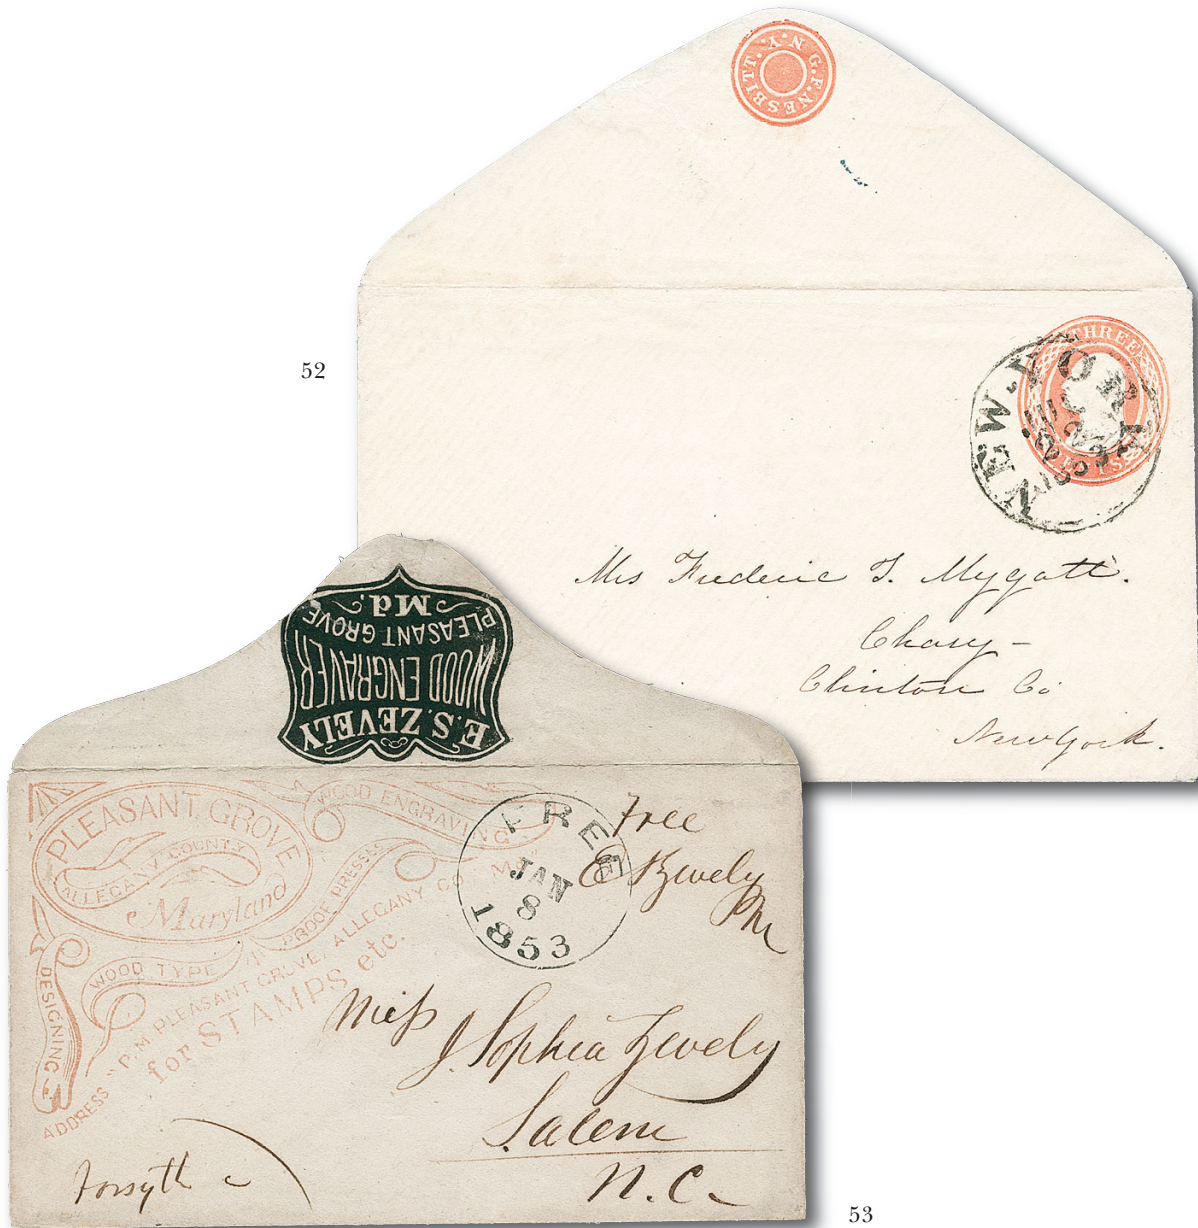 G.F. NESBITT. N.Y.
52
THREE
CENTS
NEW-YORK
JUL
Mrs Frederic T. Mygatt.
Chasy -
Clinton Co
New York.
E.S. ZEVELY
WOOD ENGRAVER
PLEASANT GROVE
Md,
PLEASANT GROVE
ALLEGANY COUNTY
Maryland
WOOD ENGRAVING
PROOF PRESSES
WOOD TYPE
DESIGNING &c
ADDRESS "P.M. PLEASANT GROVE, ALLEGANY CO. Md."
for STAMPS etc.
FREE
JAN
8
1853
Free
E S Zevely
PM
Miss
J. Sophia Zevely
Salem
N.C.
Forsyth c
53